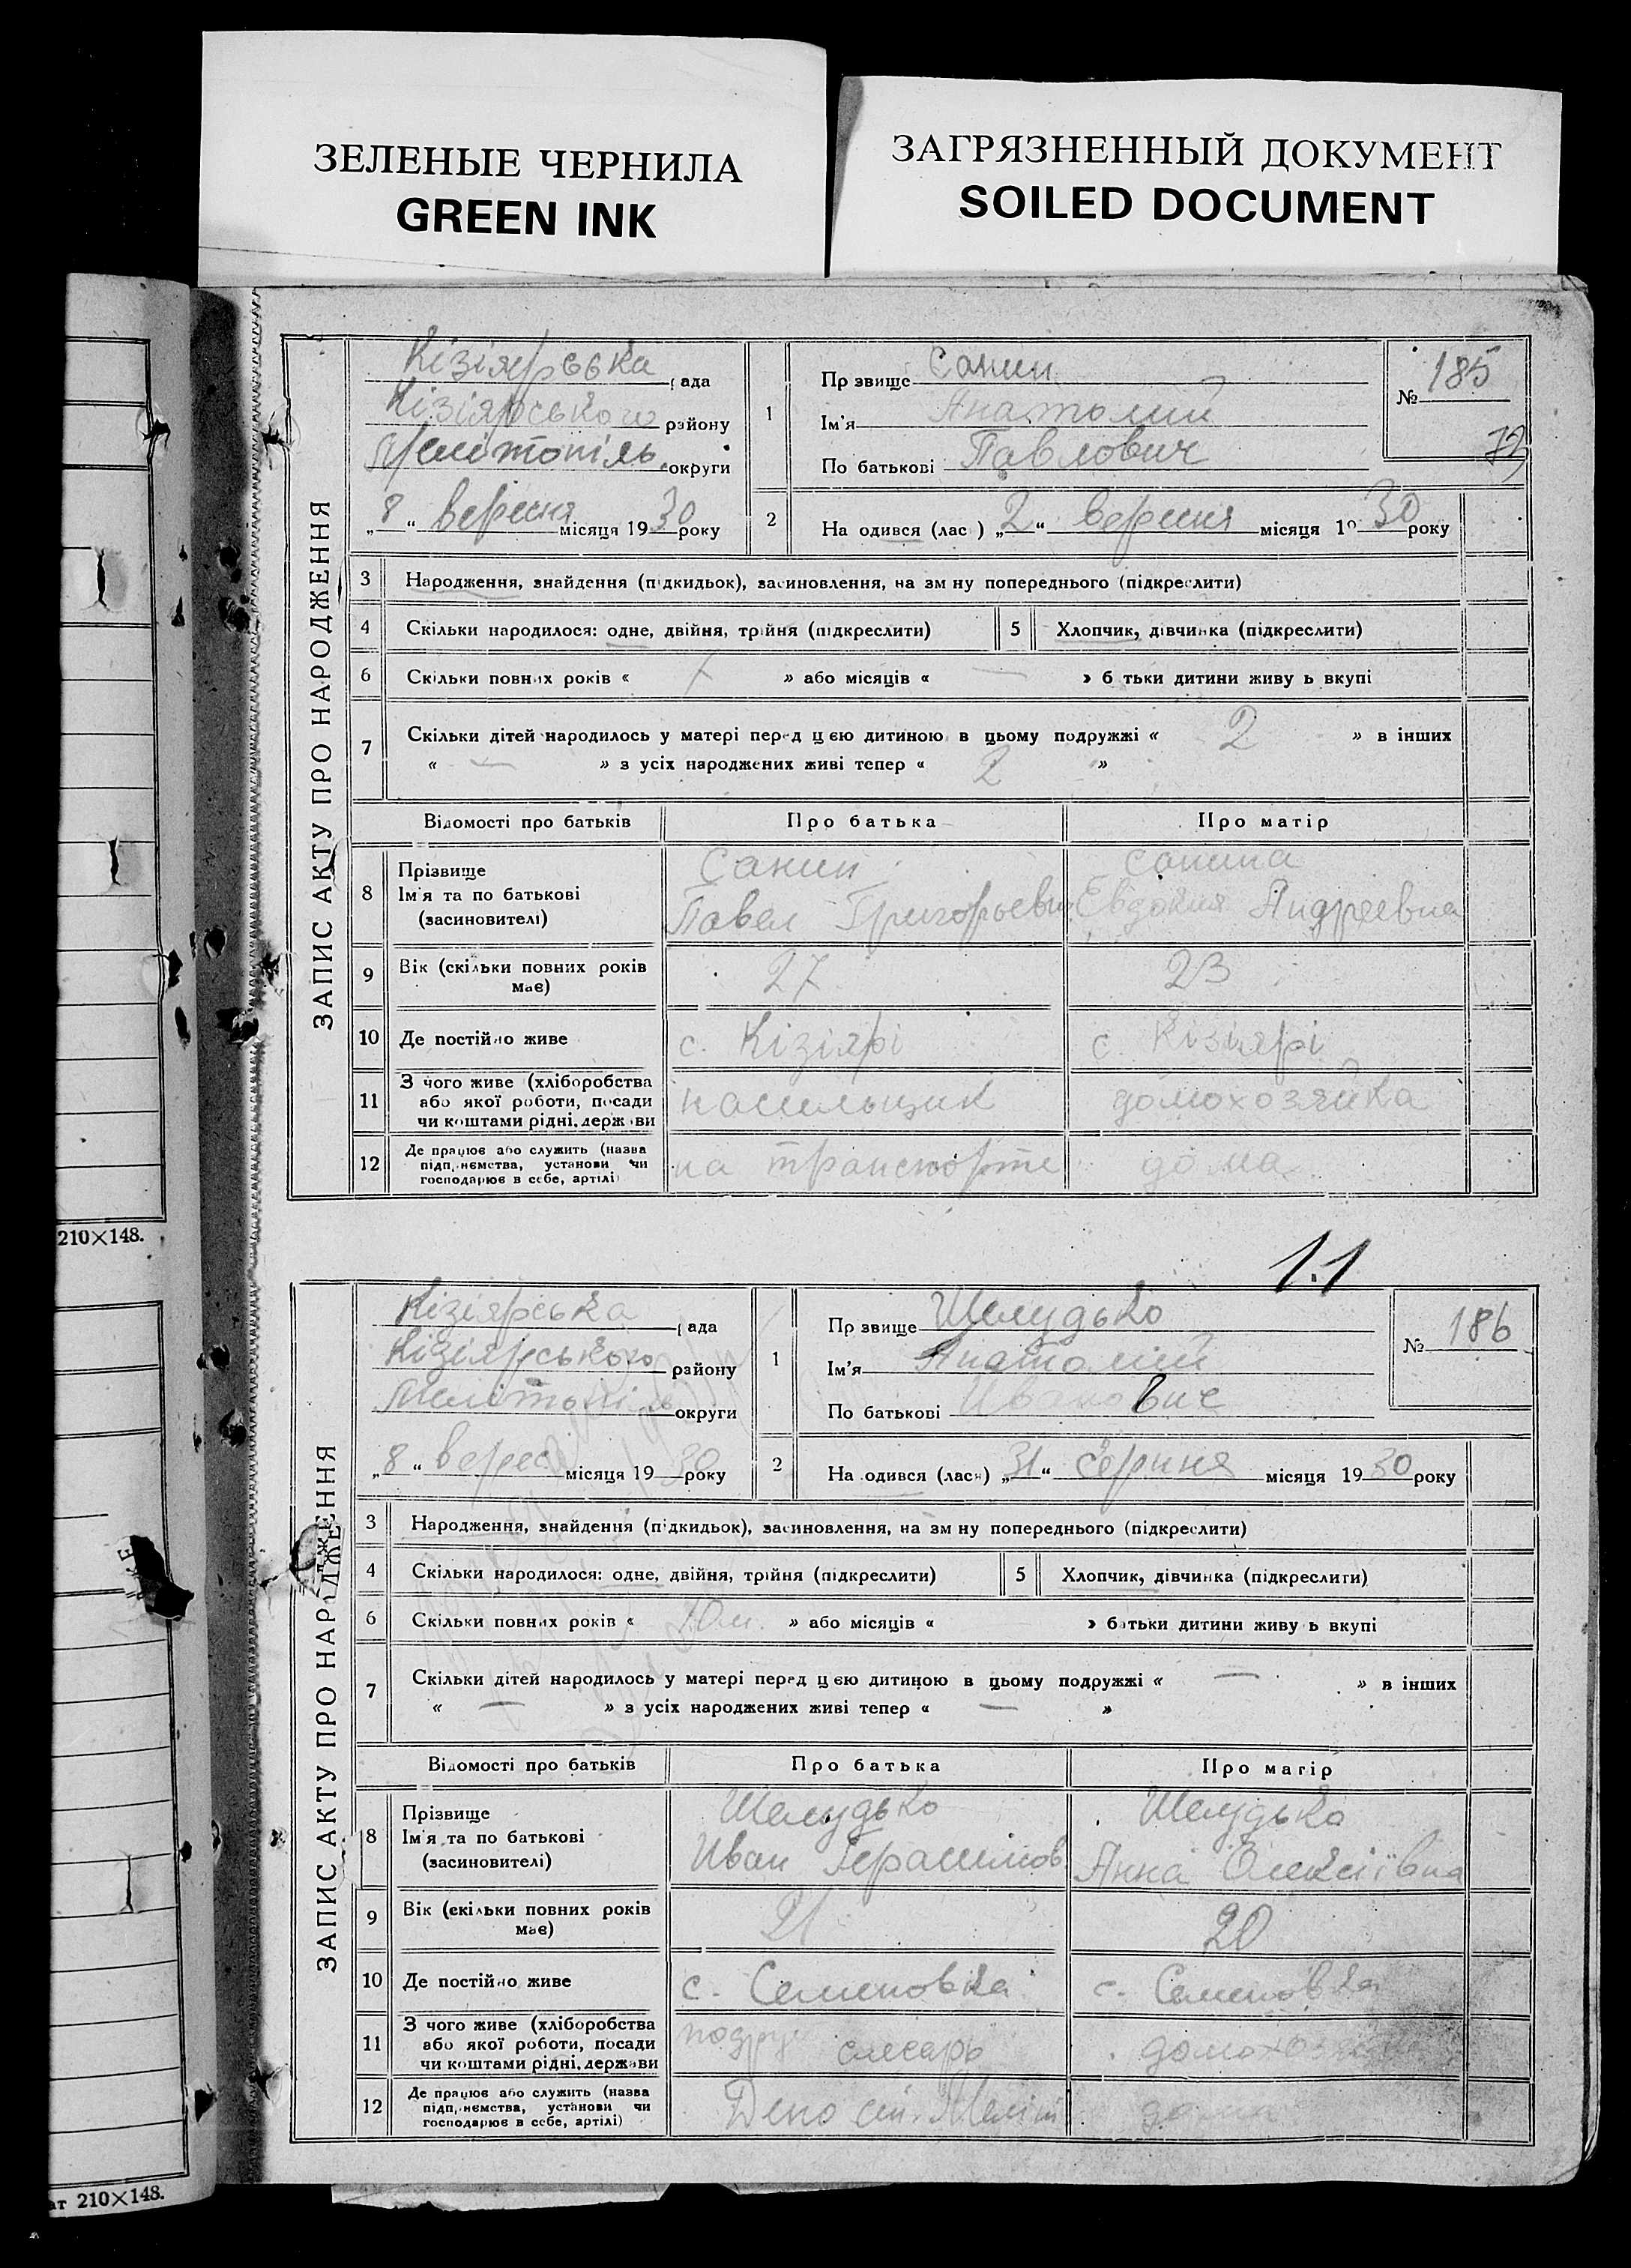 ЗЕЛЕНЫЕ ЧЕРНИЛА
GREEN INK
ЗАГРЯЗНЕННЫЙ ДОКУМЕНТ
SOILED DOCUMENT
210×148.
ат 210×148.
ЗАПИС АКТУ ПРО НАРОДЖЕННЯ
Кізіярська ада
Кізіярського району
Мелітопіль округи
„8“ вересня місяця 1930 року
1
Пр звище Санин
Ім'я Анатолий
По батькові Павлович
№ 185
72
2
На одився (лас ) „2“ вересня місяця 1930 року
3 Народження, знайдення (підкидьок), засиновлення, на зм ну попереднього (підкреслити)
4 Скільки народилося: одне, двійня, трійня (підкреслити)
5 Хлопчик, дівчинка (підкреслити)
6 Скільки повних років « » або місяців « — » б тьки дитини живу ь вкупі
7 Скільки дітей народилось у матері перед цією дитиною в цьому подружжі « 2 » в інших
« — » з усіх народжених живі тепер « 2 »
Відомості про батьків Про батька Про матір
8 Прізвище
Ім'я та по батькові
(засиновителі)
Санин
Павел Григорьевич
Санина
Евдокия Андреевна
9 Вік (скільки повних років
має)
27
23
10 Де постійно живе с. Кізіярі с. Кізіярі
11 З чого живе (хліборобства
або якої роботи, посади
чи коштами рідні, держави
насильщик
домохозяйка
12 Де працює або служить (назва
підприємства, установи чи
господарює в себе, артілі)
на транспорте
дома
1.1
ЗАПИС АКТУ ПРО НАРОДЖЕННЯ
Кізіярська ада
Кізіярського району
Мелітопіль округи
„8“ верес місяця 1930 року
1
Пр звище Шелудько
Ім'я Анатолий
По батькові Иванович
№ 186
2
На одився (лася) „31“ серпня місяця 1930 року
3 Народження, знайдення (підкидьок), засиновлення, на зм ну попереднього (підкреслити)
4 Скільки народилося: одне, двійня, трійня (підкреслити)
5 Хлопчик, дівчинка (підкреслити)
6 Скільки повних років « 10 м. » або місяців « » батьки дитини живу ь вкупі
7 Скільки дітей народилось у матері перед цією дитиною в цьому подружжі « — » в інших
« — » з усіх народжених живі тепер « — »
Відомості про батьків Про батька Про матір
8 Прізвище
Ім'я та по батькові
(засиновителі)
Шелудько
Иван Герасимов.
Шелудько
Анна Олексіївна
9 Вік (скільки повних років
має)
21
20
10 Де постійно живе с. Семеновка с. Семеновка
11 З чого живе (хліборобства
або якої роботи, посади
чи коштами рідні, держави
слесарь
12 Де працює або служить (назва
підприємства, установи чи
господарює в себе, артілі)
Депо ст. Меліт
дома